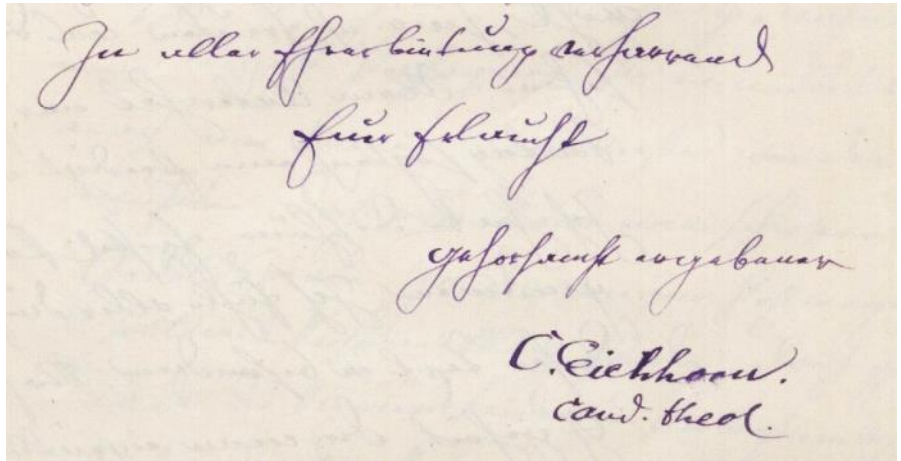 In aller Ehrerbietung verharrend
Euer Erlaucht
gehorsamst ergebener
C. Eickhoorn.
cand. theol.